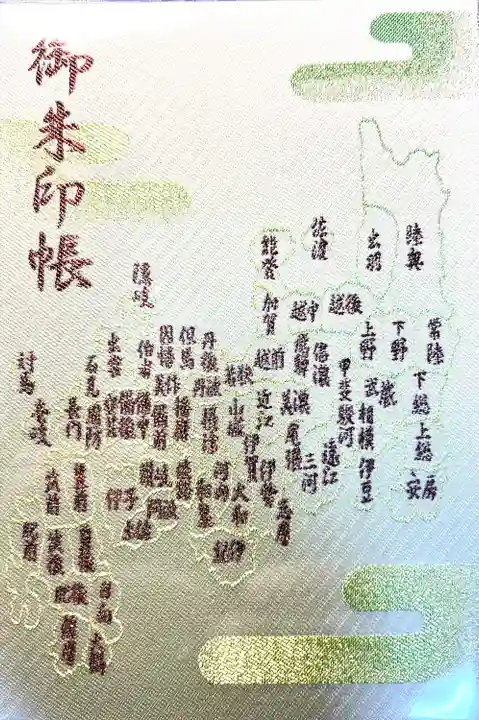 御朱印帳
陸奥
出羽
佐渡
能登
越後
越中
加賀
隠岐
常陸
下野
上野
信濃
飛騨
越前
若狭
丹後
但馬
因幡
伯耆
出雲
石見
対馬
壱岐
下総
上総
安房
武蔵
相模
甲斐
駿河
伊豆
遠江
三河
美濃
尾張
近江
山城
丹波
伊賀
伊勢
志摩
摂津
播磨
美作
備前
備中
備後
安芸
周防
長門
大和
河内
和泉
紀伊
淡路
讃岐
阿波
伊予
土佐
筑前
豊前
肥前
筑後
豊後
肥後
日向
薩摩
大隅